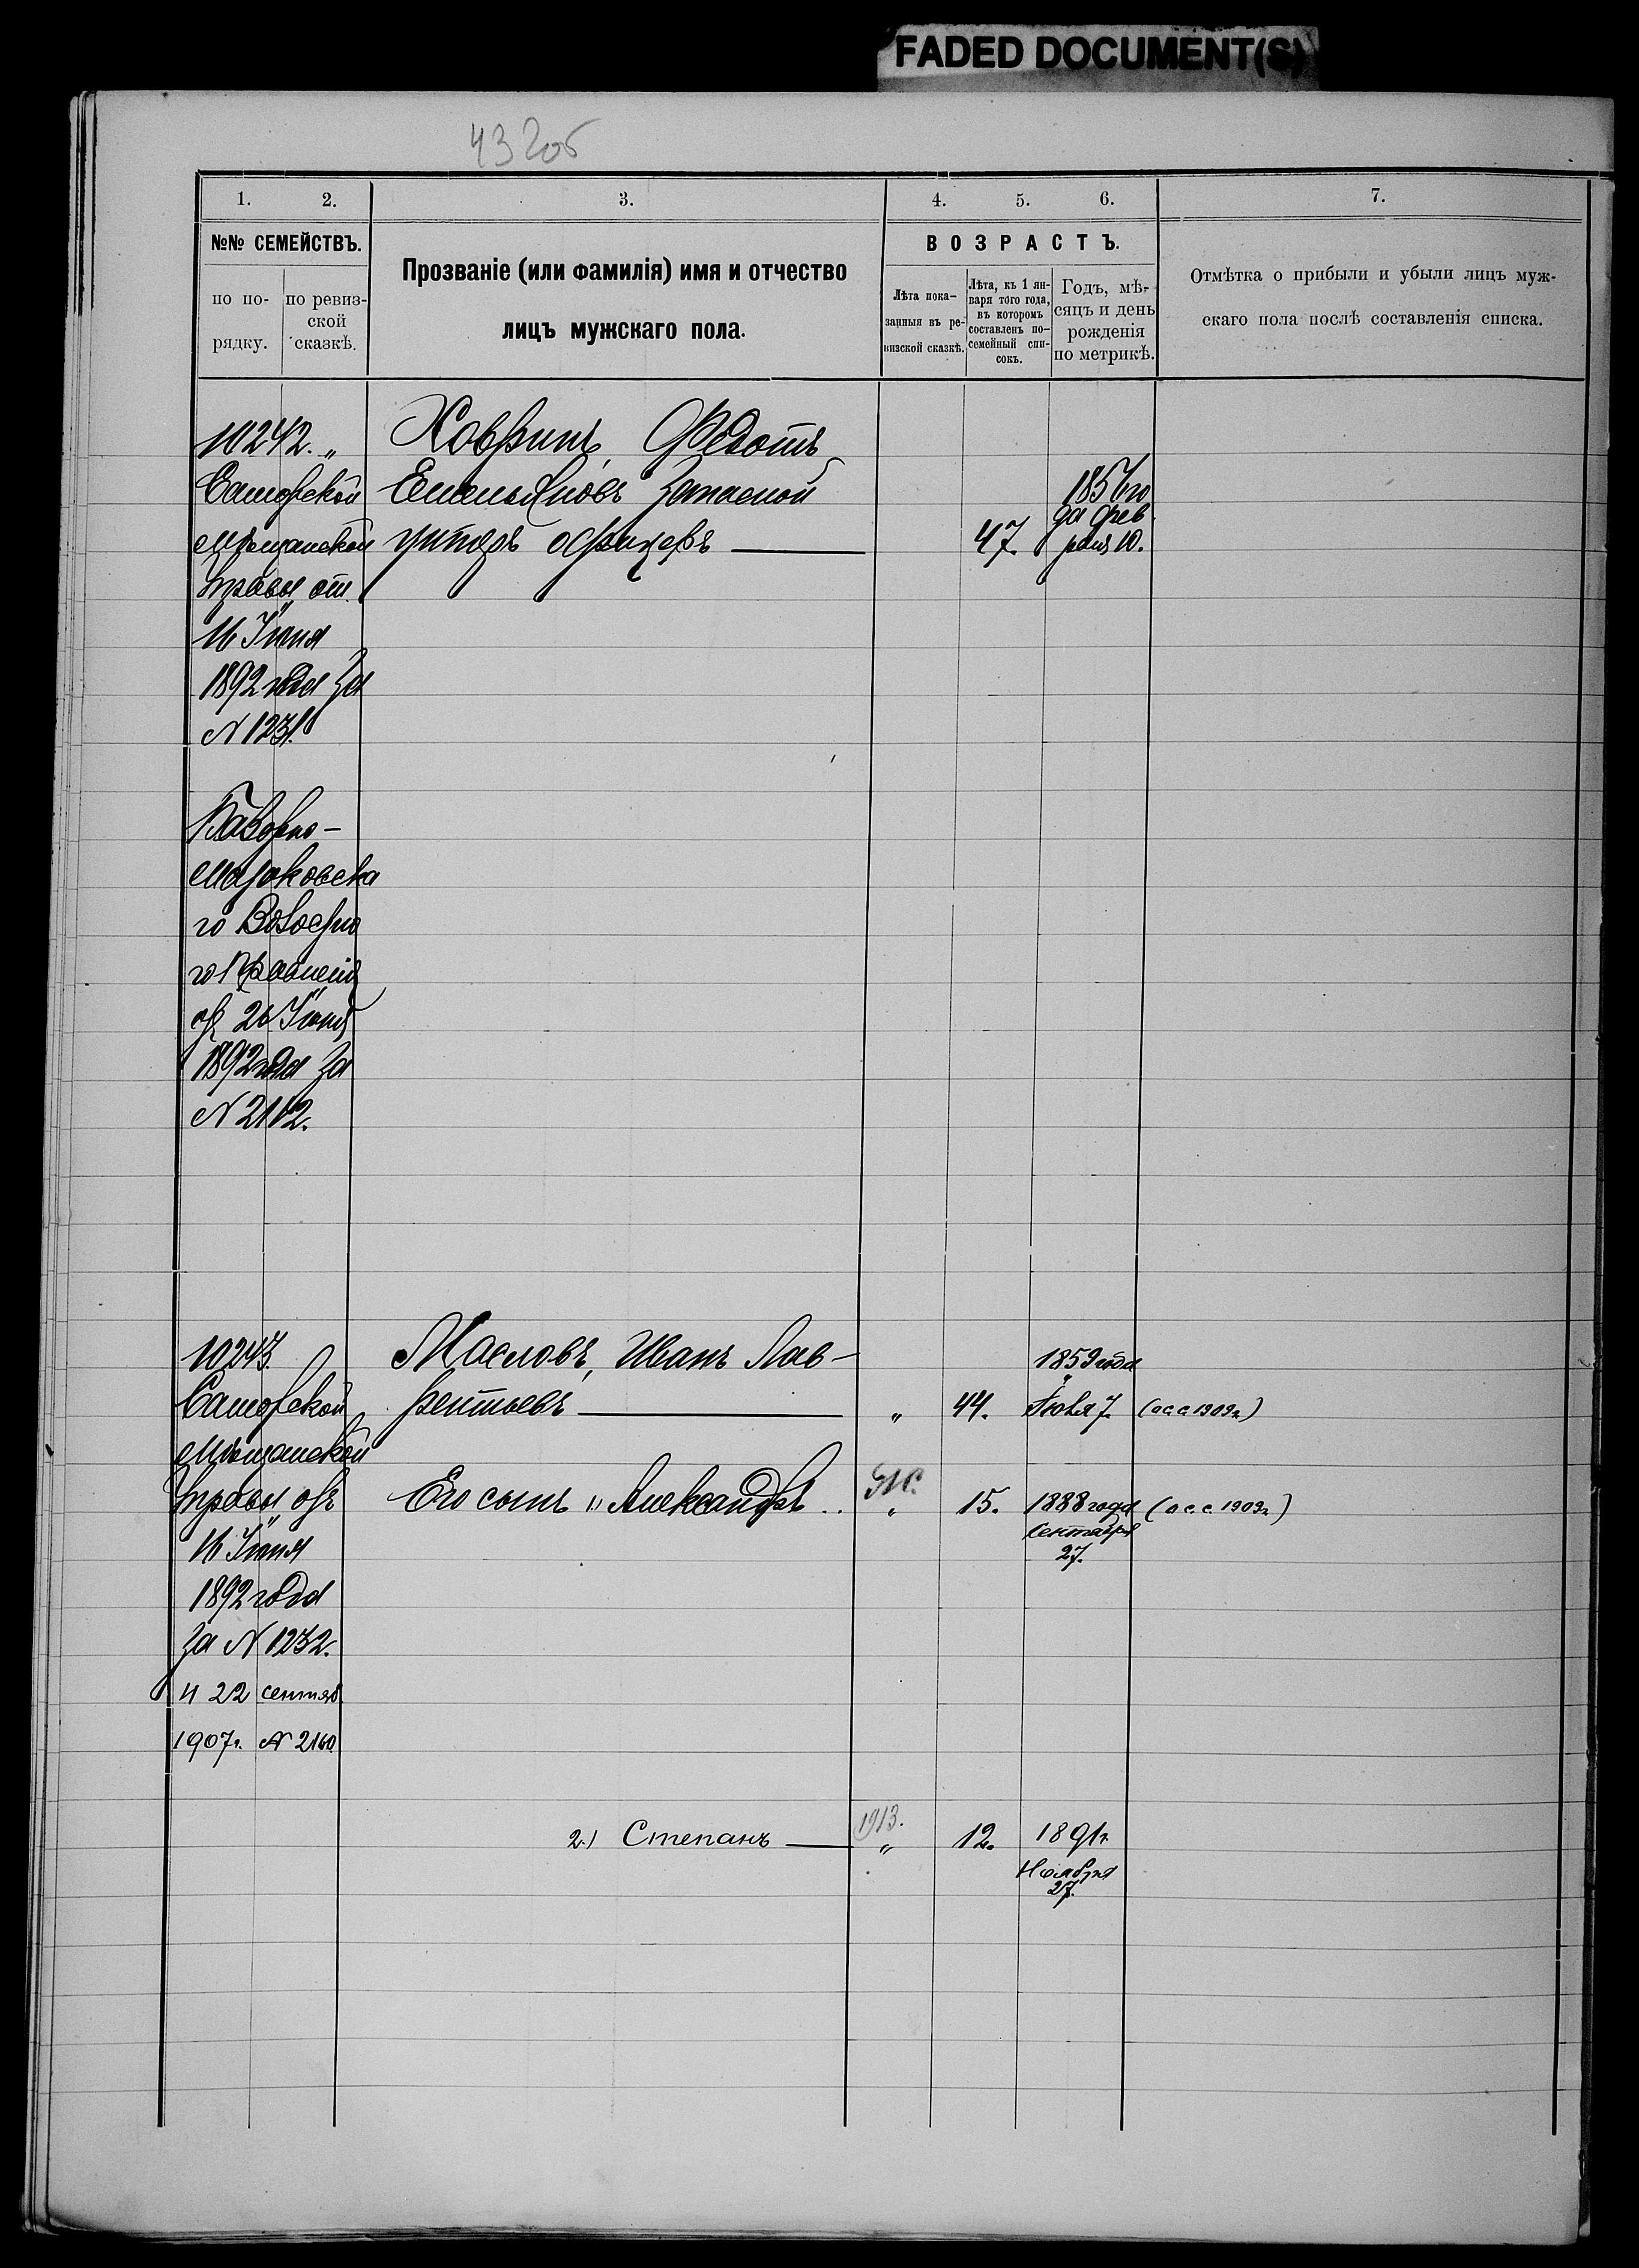 FADED DOCUMENT(S)
43 2об
1. 2. 3. 4. 5. 6. 7.
№№ СЕМЕЙСТВЪ.
по по-
рядку.
по ревиз-
ской
сказкѣ.
Прозваніе (или фамилія) имя и отчество
лицъ мужскаго пола.
ВОЗРАСТЪ.
Лѣта пока-
занныя въ ре-
визской сказкѣ.
Лѣта, къ 1 ян-
варя того года,
въ которомъ
составленъ по-
семейный спи-
сокъ.
Годъ, мѣ-
сяцъ и день
рожденія
по метрикѣ.
Отмѣтка о прибыли и убыли лицъ муж-
скаго пола послѣ составленія списка.
10242. "
Самарской
Мѣщанской
Управы от
16 Іюня
1892 года За
N 1231.
Ховринъ, Федотъ
Емельяновъ Запасной
унтеръ офицеръ
47.
1856 го
да фев
раля 10.
Базарно-
го
го Правленія
от 26 Іюня
1892 года За
N 2112.
10243.
Самарской
Мѣщанской
Управы отъ
16 Іюня
1892 года
За N 1232.
и 22 сентяб
1907г. N 2160
Масловъ, Иванъ Лав-
рентьевъ
" 44.
1859 года
Іюля 7.
(осс 1909г.)
Его сынъ "Александръ
" 15.
1888 года
Сентября
27.
(осс 1909г.)
2.) Степанъ
1913.
" 12.
1891г.
Ноября
27.